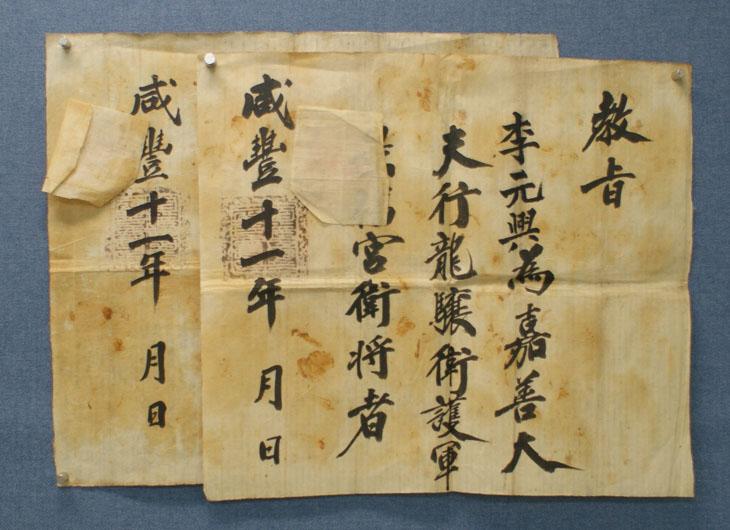 教旨
李元興為嘉善大
夫行龍驤衛護軍
宮衛将者
咸豐十一年 月日
咸豐十一年 月日